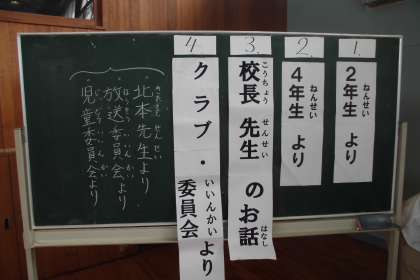 1.
2年生 より
ねんせい
2.
4年生 より
ねんせい
3.
校長 先生 のお話
こうちょう せんせい はなし
4
クラブ・委員会より
いいんかい
北本先生より
きたもと せんせい
放送委員会より
ほうそう いいんかい
児童委員会より
じどう いいんかい